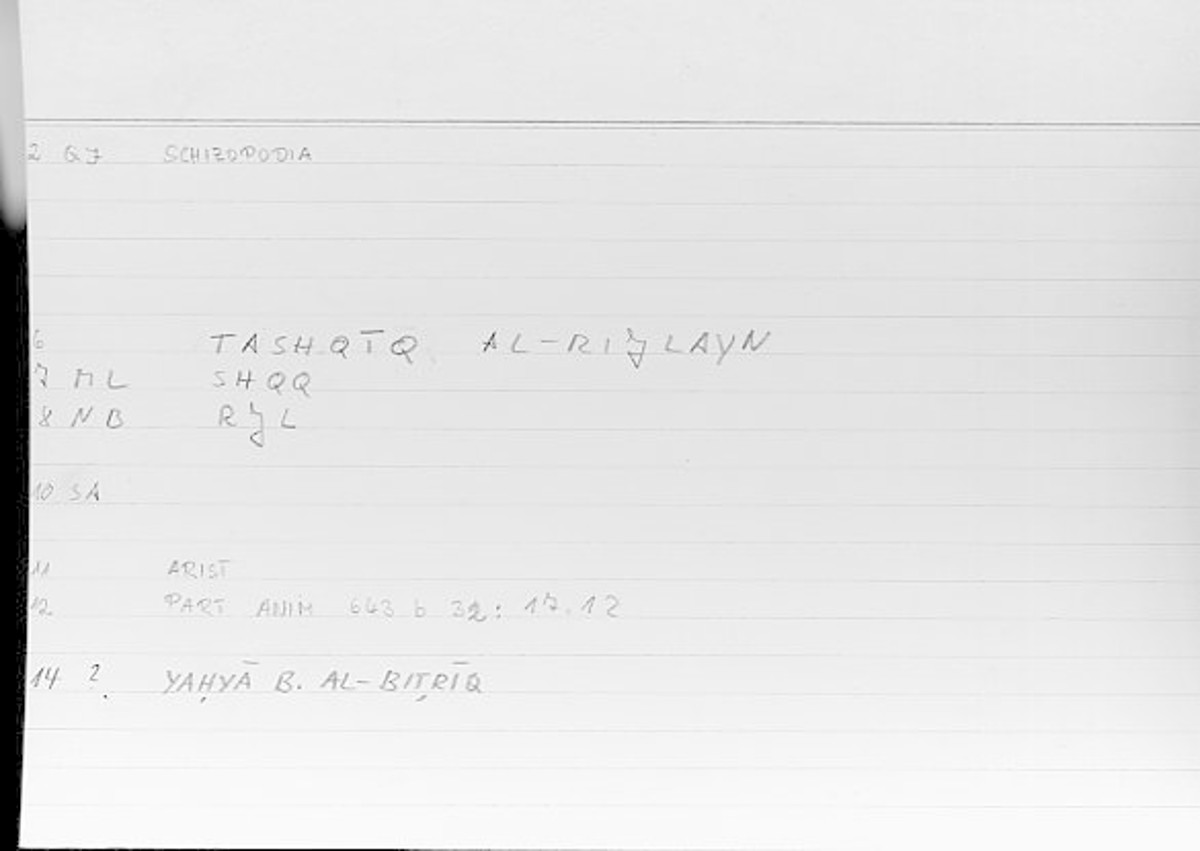 2 GJ SCHIZOPODIA
6 TASHQĪQ AL-RIJLAYN
7 ML SHQQ
8 NB RJL
10 SA
11 ARIST
12 PART ANIM 643 b 32: 17.12
14 ?. YAḤYĀ B. AL-BIṬRĪQ